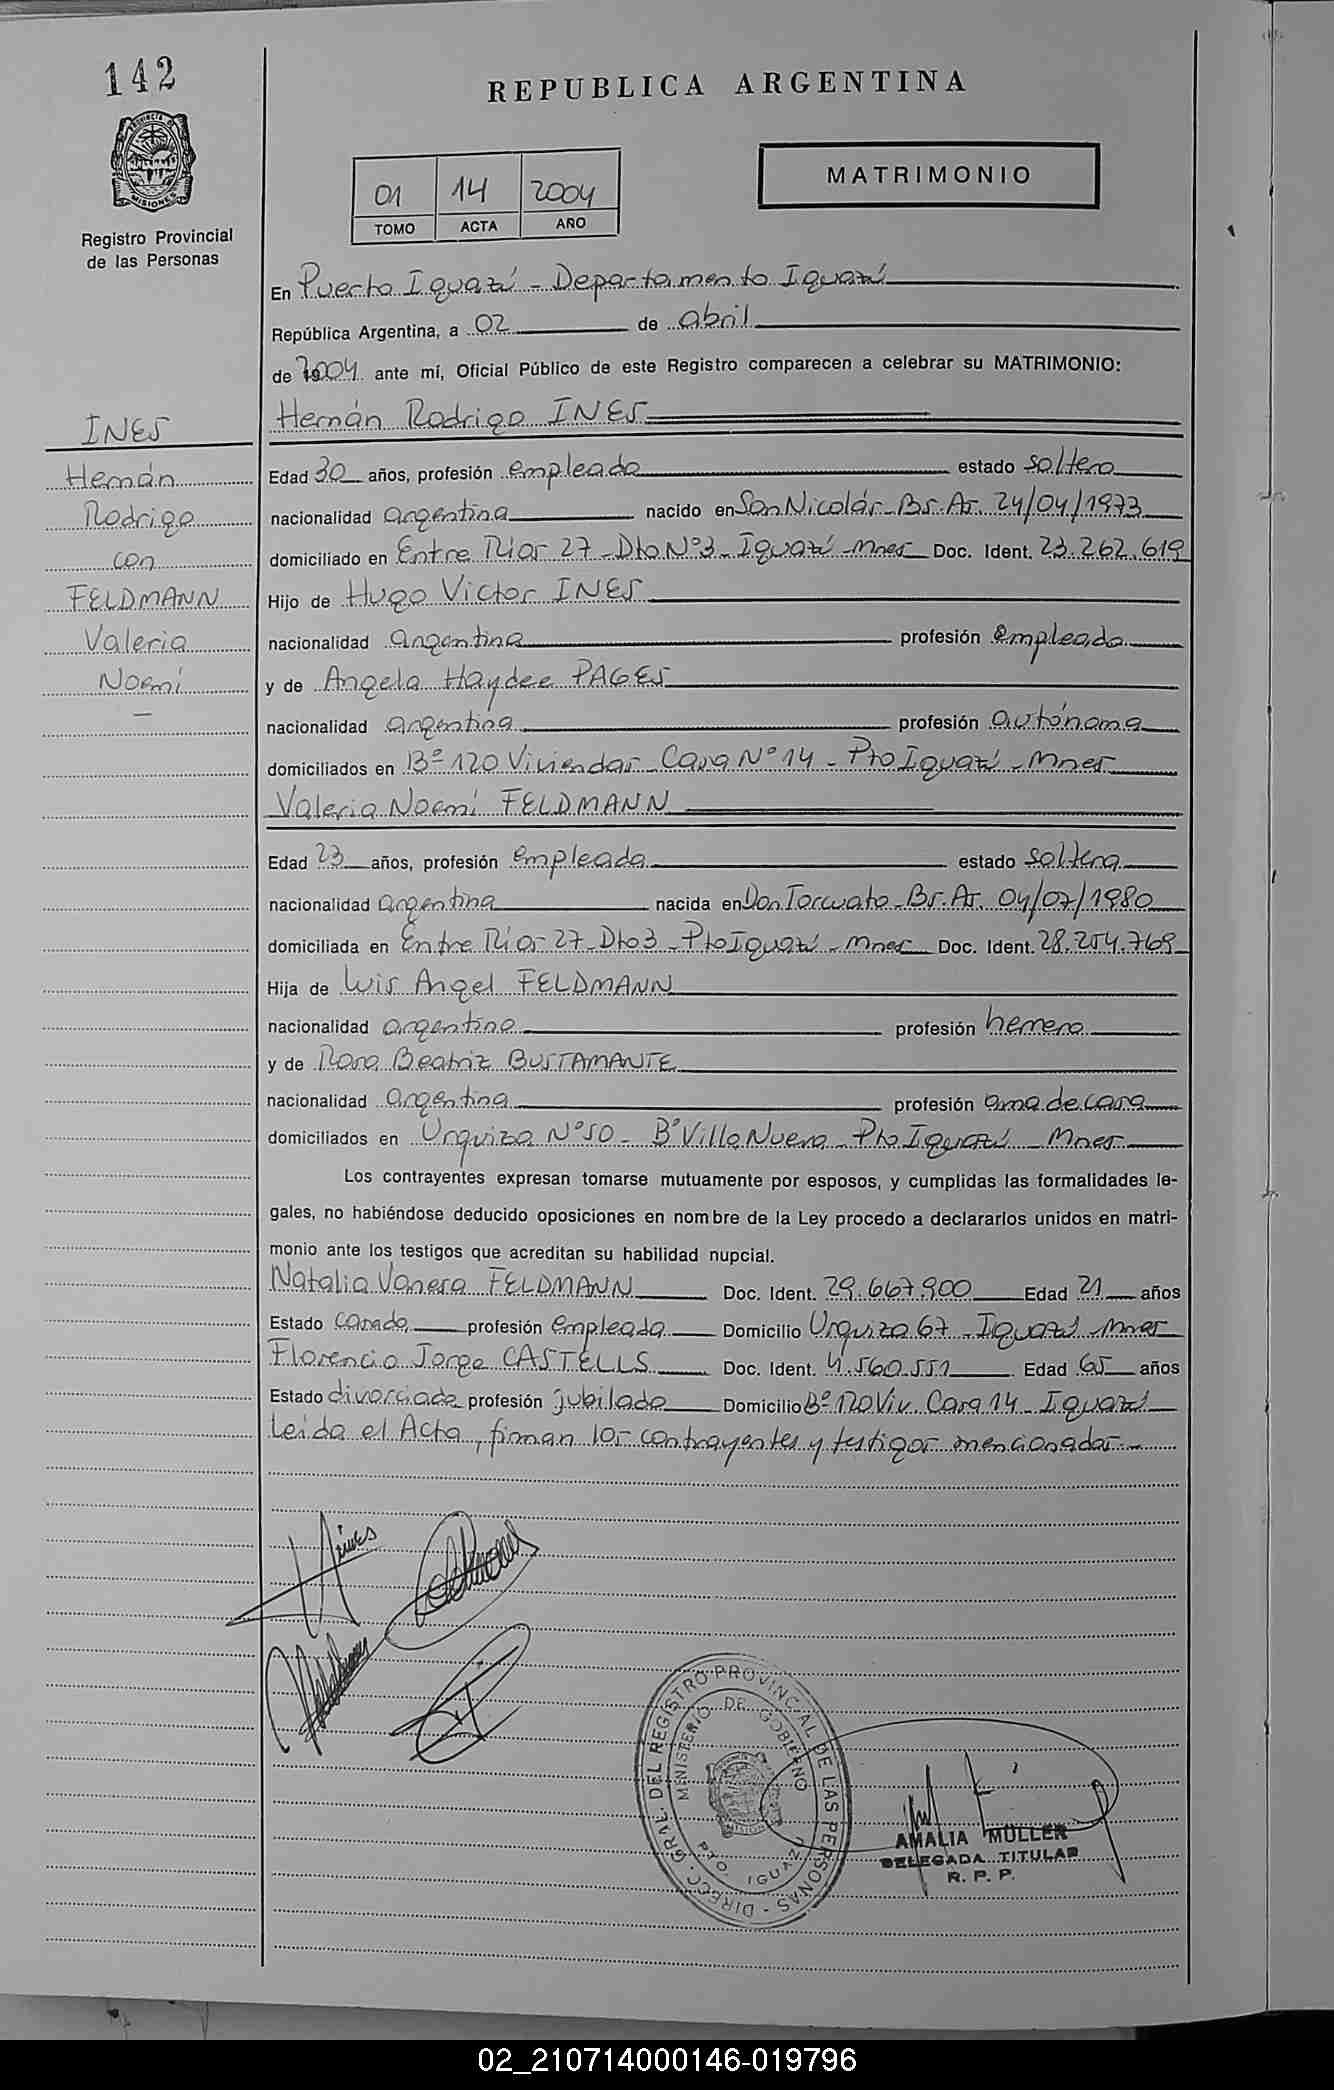 142
REPUBLICA ARGENTINA
PROVINCIA DE MISIONES
Registro Provincial
de las Personas
01 14 2004
TOMO ACTA AÑO
MATRIMONIO
En Puerto Iguazú - Departamento Iguazú
República Argentina, a 02 de abril
de 2004 ante mí, Oficial Público de este Registro comparecen a celebrar su MATRIMONIO:
Hernán Rodrigo INES
INES
Hernán
Rodrigo
con
FELDMANN
Valeria
Noemí
Edad 30 años, profesión empleado estado soltero
nacionalidad argentina nacido en San Nicolás - Bs. As. 24/04/1973
domiciliado en Entre Ríos 27 - Dto Nº 3 - Iguazú - Mnes Doc. Ident. 23.262.619
Hijo de Hugo Victor INES
nacionalidad argentina profesión empleado
y de Angela Haydee PAGES
nacionalidad argentina profesión autónoma
domiciliados en Bº 120 Viviendas Casa Nº 14 - Pto Iguazú - Mnes
Valeria Noemí FELDMANN
Edad 23 años, profesión empleada estado soltera
nacionalidad argentina nacida en Don Torcuato - Bs. As. 04/07/1980
domiciliada en Entre Ríos 27 - Dto 3 - Pto Iguazú - Mnes Doc. Ident. 28.254.769
Hija de Luis Angel FELDMANN
nacionalidad argentina profesión herrero
y de Rosa Beatriz BUSTAMANTE
nacionalidad argentina profesión ama de casa
domiciliados en Urquiza Nº 50 - Bº Villa Nueva - Pto Iguazú - Mnes
Los contrayentes expresan tomarse mutuamente por esposos, y cumplidas las formalidades le-
gales, no habiéndose deducido oposiciones en nombre de la Ley procedo a declararlos unidos en matri-
monio ante los testigos que acreditan su habilidad nupcial.
Natalia Vanesa FELDMANN Doc. Ident. 29.667.900 Edad 21 años
Estado casada profesión empleada Domicilio Urquiza 67 - Iguazú - Mnes
Florencio Jorge CASTELLS Doc. Ident. 4.560.551 Edad 65 años
Estado divorciado profesión jubilado Domicilio Bº 120 Viv. Casa 14 - Iguazú
Leída el Acta, firman los contrayentes y testigos mencionados.-
DIRECC. GRAL. DEL REGISTRO PROVINCIAL DE LAS PERSONAS
MINISTERIO DE GOBIERNO
PTO. IGUAZU
AMALIA MÜLLER
DELEGADA TITULAR
R. P. P.
02_210714000146-019796